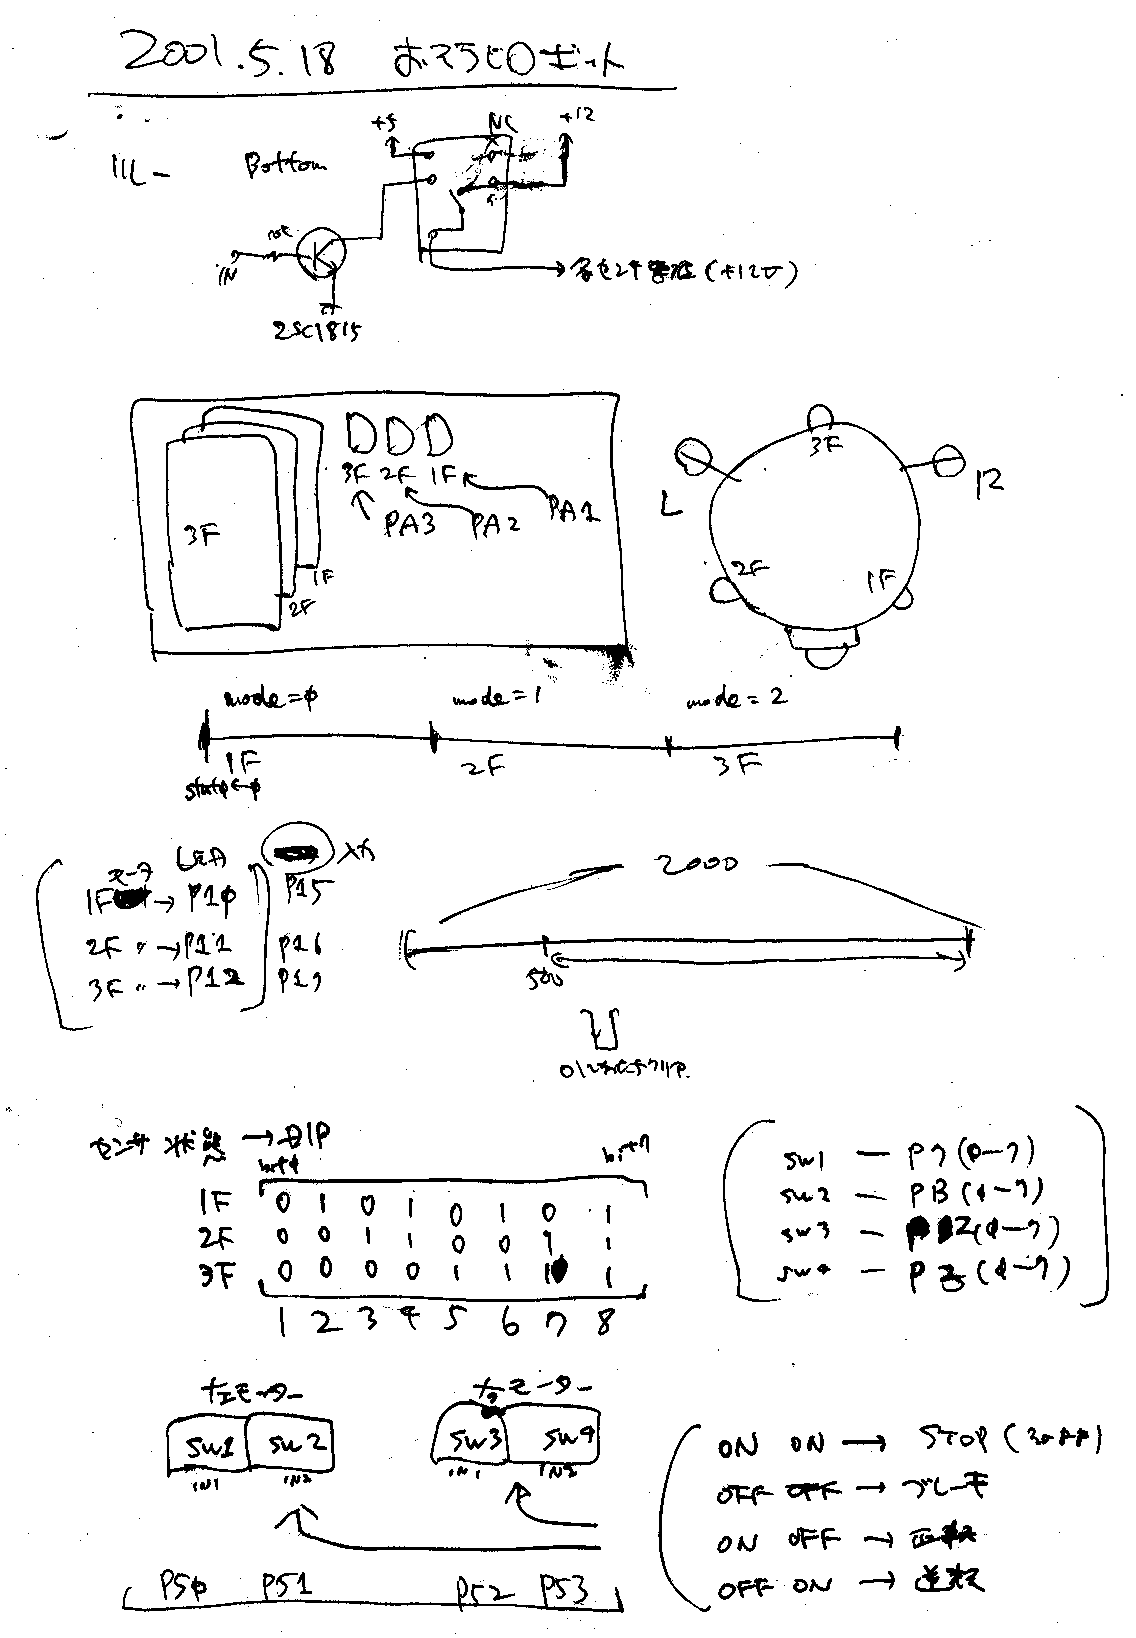 2001.5.18 おそうじロボット
+5 NC +12
Bottom
10k
IN
2SC1815
(+12V)
3F 2F 1F
PA3 PA2 PA1
3F
1F
2F
3F
L R
2F 1F
mode=φ mode=1 mode=2
1F 2F 3F
state←φ
モータ LED 入力
1F → P1φ P15
2F 〃 → P11 P16
3F 〃 → P12 P17
2000
500
センサ状態 → DIP
bit0 bit7
1F 0 1 0 1 0 1 0 1
2F 0 0 1 1 0 0 1 1
3F 0 0 0 0 1 1 1 1
1 2 3 4 5 6 7 8
SW1 — P7 (0-7)
SW2 — PB (0-7)
SW3 — (0-7)
SW4 — (0-7)
左モーター 右モーター
SW1 SW2 SW3 SW4
IN1 IN2 IN1 IN2
P5φ P51 P52 P53
ON ON → STOP
OFF OFF → ブレーキ
ON OFF → 正転
OFF ON → 逆転